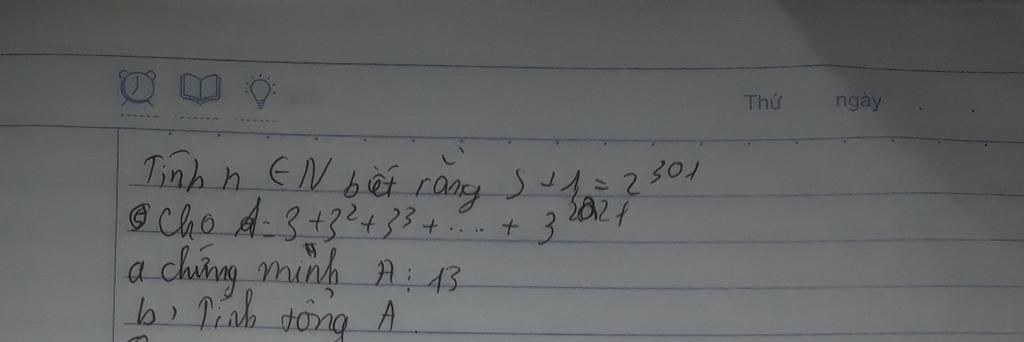 Thứ ngày . .
Tính n ∈ N biết rằng S + 1 = 2^301
Cho A = 3 + 3^2 + 3^3 + .... + 3^2021
a chứng minh A ⋮ 13
b, Tính tổng A